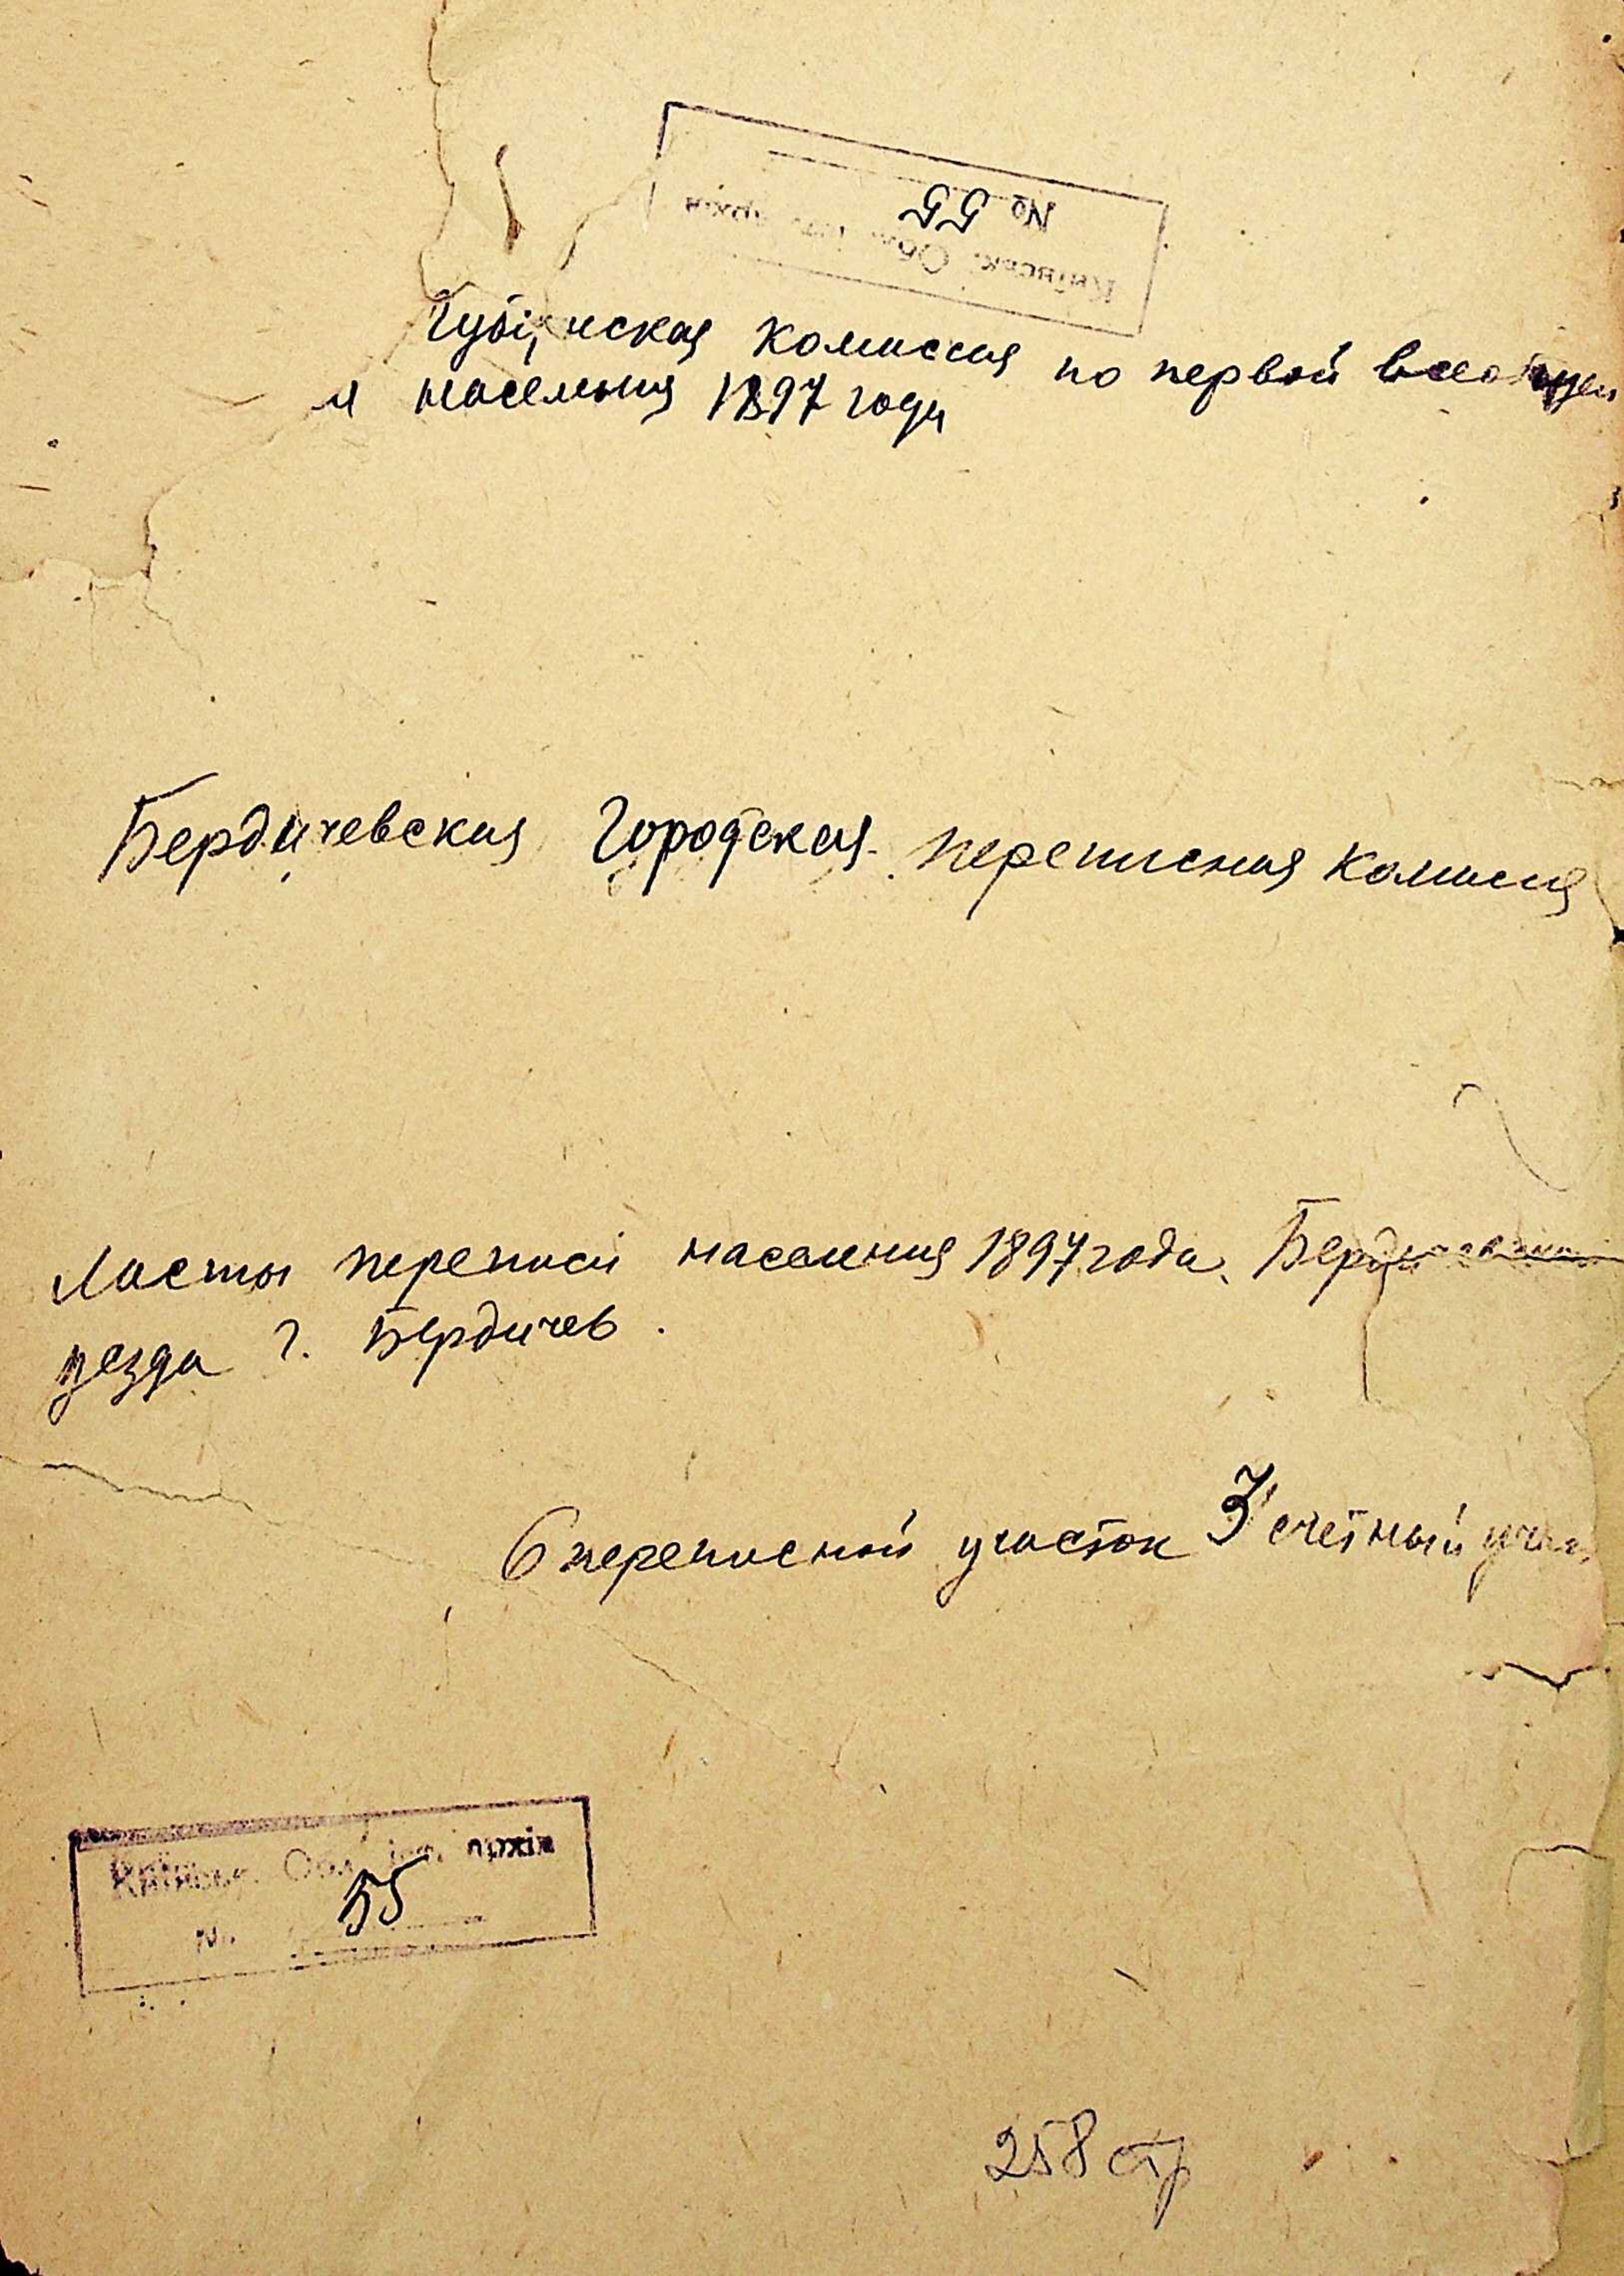 № 55
Київськ. Обл. іст. архів
Губ нская комиссия по первой всеобщей
и населения 1897 года
Бердичевская Городская переписная комисия
Листы переписи населения 1897 года. Бердичевский
уезда г. Бердичев.
6 переписной участок 3 счетный учас
Київськ. Обл. іст. архів
№ 55
258 стр